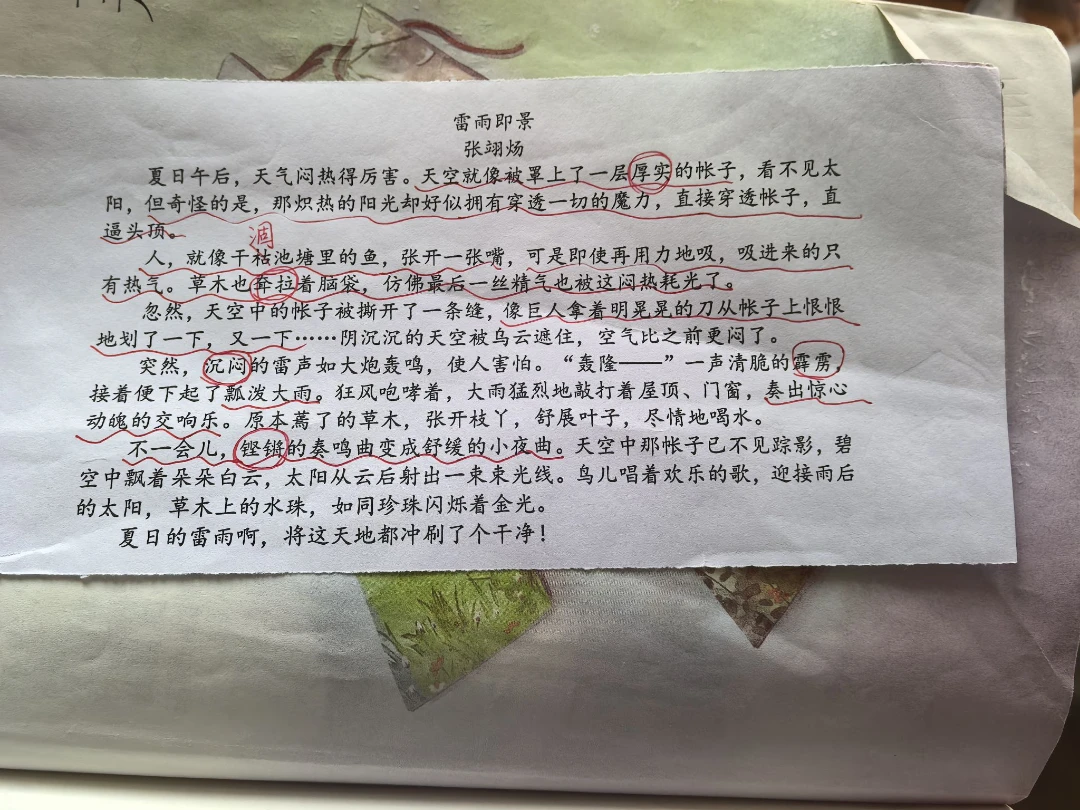 雷雨即景
张翊炀
夏日午后，天气闷热得厉害。天空就像被罩上了一层厚实的帐子，看不见太
阳，但奇怪的是，那炽热的阳光却好似拥有穿透一切的魔力，直接穿透帐子，直
逼头顶。
涸
人，就像干枯池塘里的鱼，张开一张嘴，可是即使再用力地吸，吸进来的只
有热气。草木也耷拉着脑袋，仿佛最后一丝精气也被这闷热耗光了。
忽然，天空中的帐子被撕开了一条缝，像巨人拿着明晃晃的刀从帐子上恨恨
地划了一下，又一下……阴沉沉的天空被乌云遮住，空气比之前更闷了。
突然，沉闷的雷声如大炮轰鸣，使人害怕。“轰隆——”一声清脆的霹雳，
接着便下起了瓢泼大雨。狂风咆哮着，大雨猛烈地敲打着屋顶、门窗，奏出惊心
动魄的交响乐。原本蔫了的草木，张开枝丫，舒展叶子，尽情地喝水。
不一会儿，铿锵的奏鸣曲变成舒缓的小夜曲。天空中那帐子已不见踪影，碧
空中飘着朵朵白云，太阳从云后射出一束束光线。鸟儿唱着欢乐的歌，迎接雨后
的太阳，草木上的水珠，如同珍珠闪烁着金光。
夏日的雷雨啊，将这天地都冲刷了个干净！